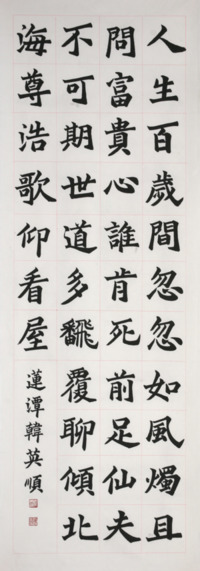 人生百歲間忽忽如風燭且
問富貴心誰肯死前足仙夫
不可期世道多飜覆聊傾北
海尊浩歌仰看屋
蓮潭韓英順